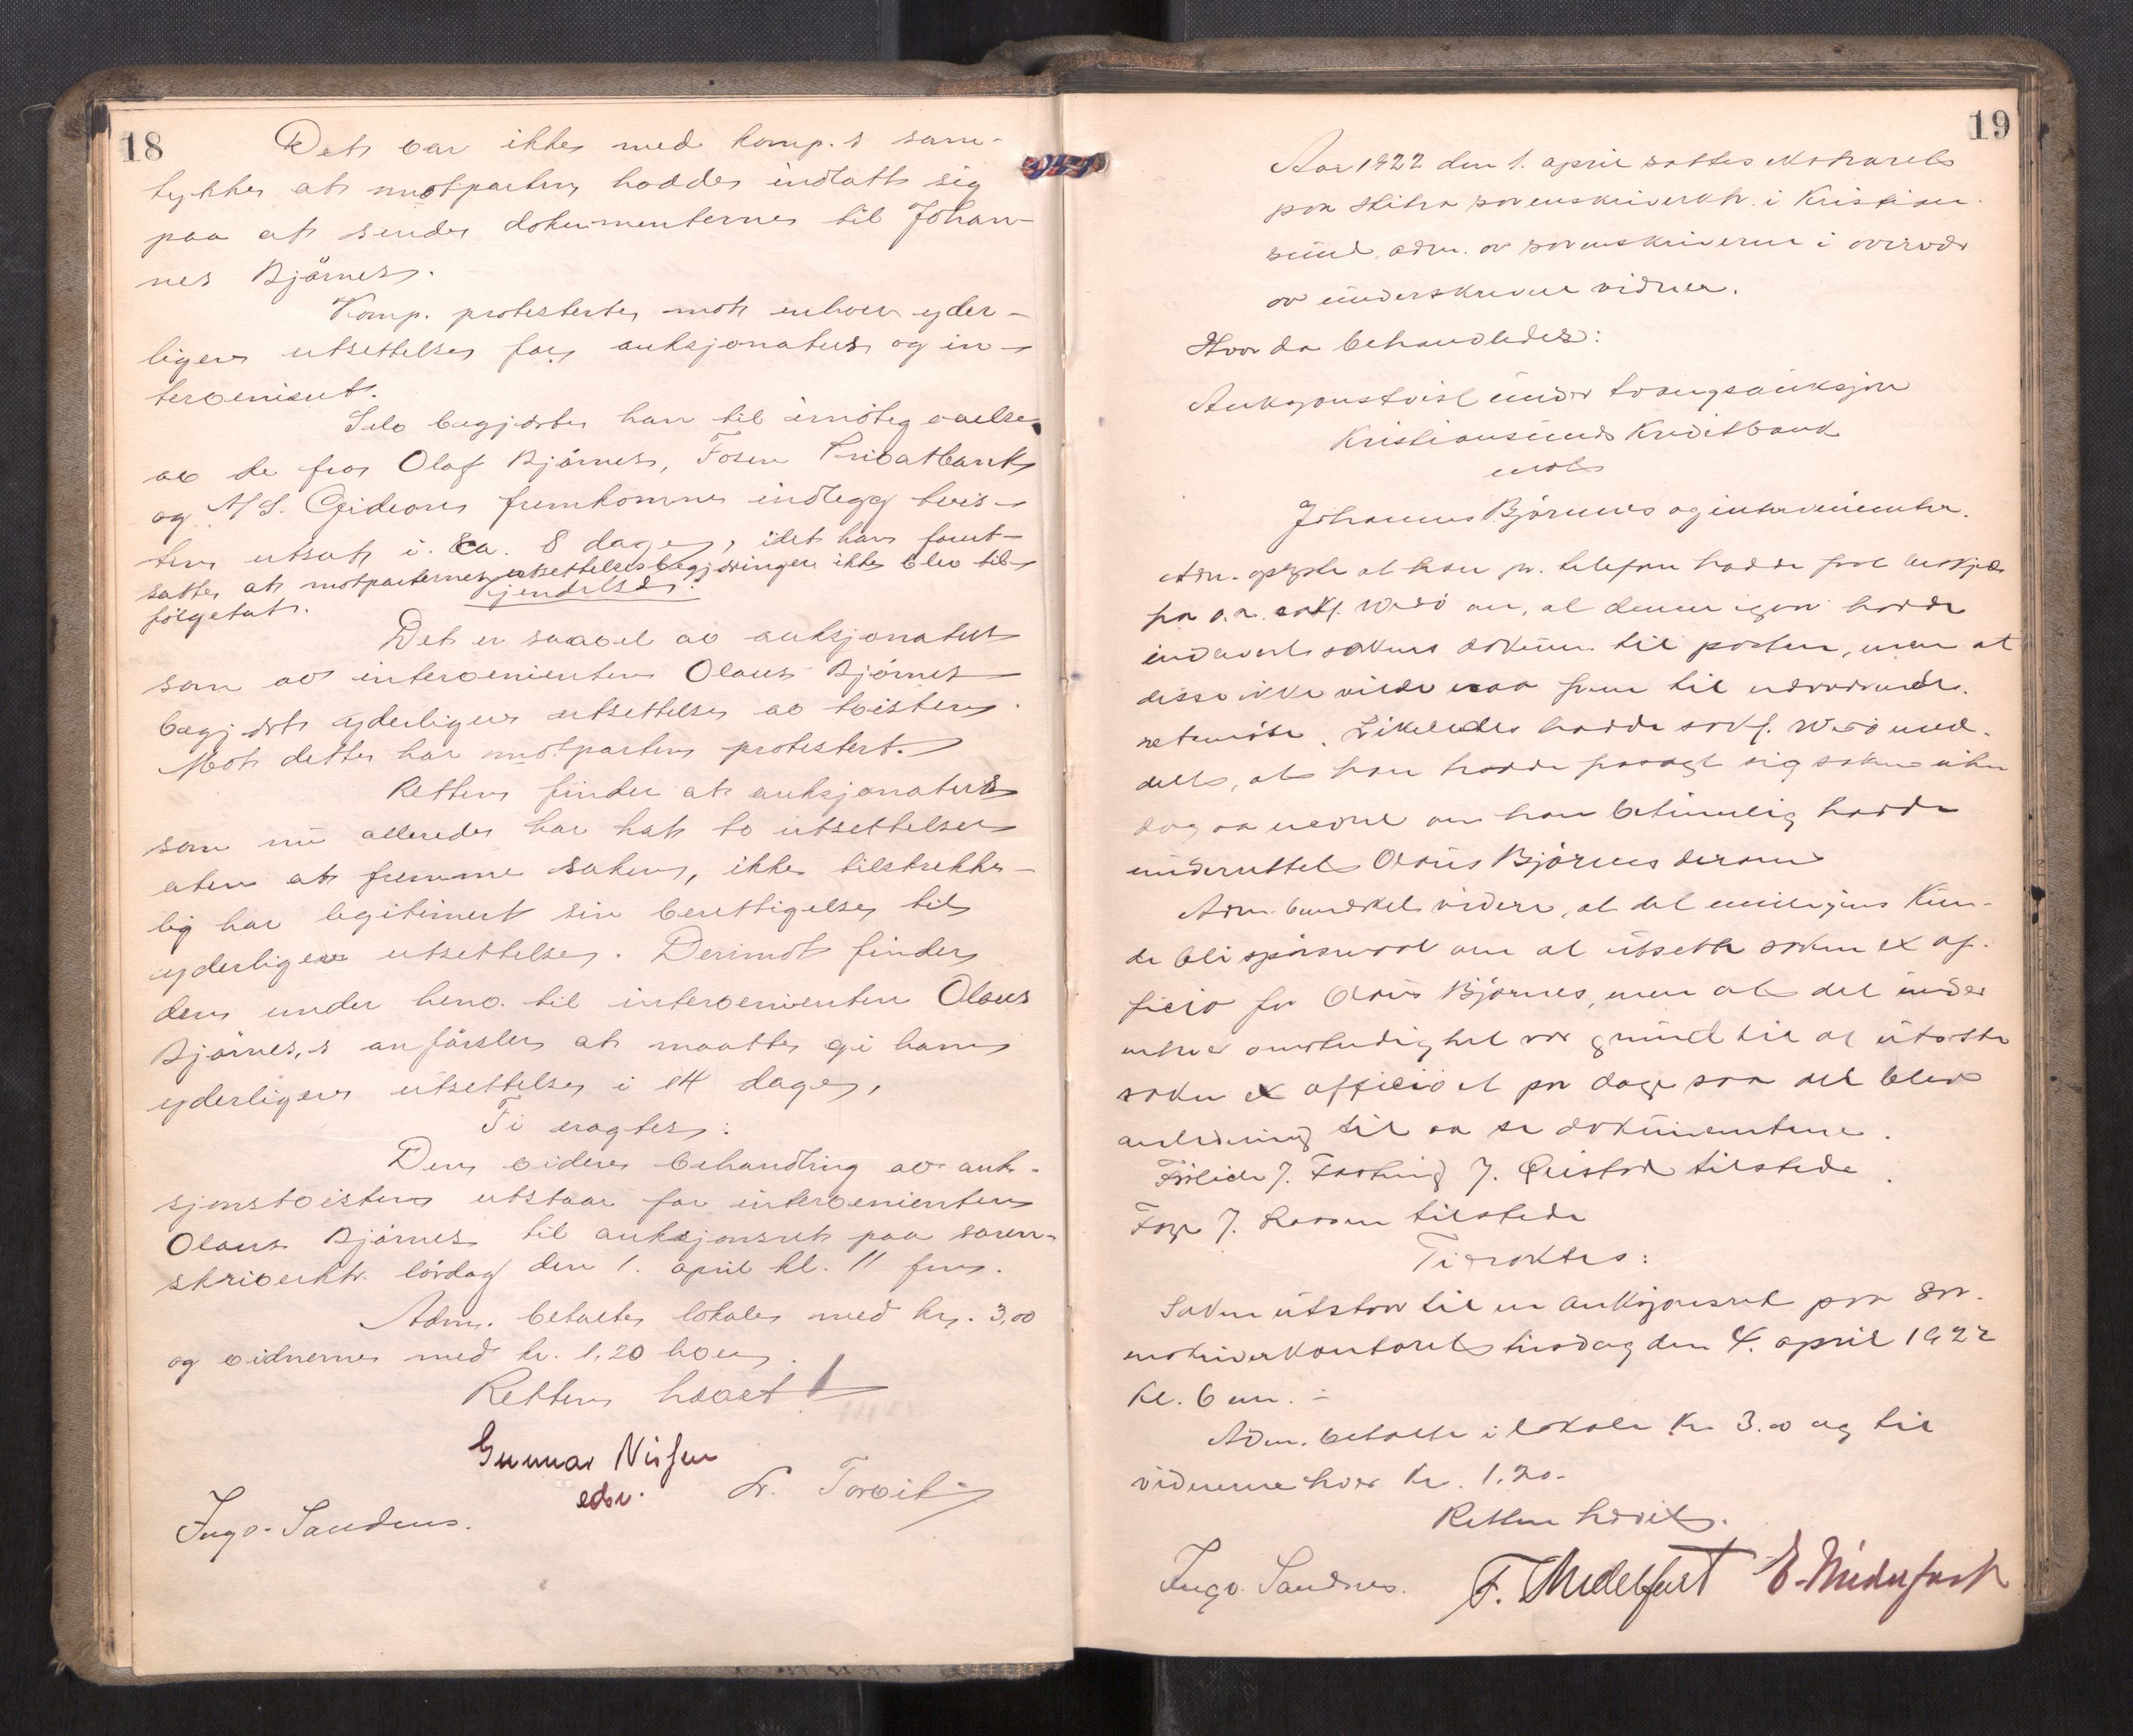 18
Det var ikke med komp.s sam-
tykke at motparten hadde indlatt sig
paa at sende dokumenterne til Johan-
nes Bjørnes.
Komp. protesterte mot enhver yder-
ligere utsettelse for auksjonatus og in-
tervenient.
Selv begjærte han til imøtegaaelse
av de fra Olaf Bjørnes, Fosen Privatbank
og A/S. Gideon fremkomne indlegg tvis-
ten utsat i ca. 8 dage, idet han forut-
satte at motparternes utsettelsesbegjæringer ikke blev til-
følgetat.
Kjendelse:
Det er saavel av auksjonatus
som av intervenienten Olaus Bjørnes
begjært yderligere utsettelse av tvisten.
Mot dette har motparten protestert.
Retten finder at auksjonatus
som nu allerede har hat to utsettelser
uten at fremme saken, ikke tilstrekke-
lig har legitimert sin berettigelse til
yderligere utsettelse. Derimot finder
den under henv. til intervenienten Olaus
Bjørnes,s anførsler at maatte gi ham
yderligere utsettelse i 14 dage,
Ti eragtes:
Den videre behandling av auk-
sjonstvisten utstaar for intervenienten
Olaus Bjørnes til auksjonsret paa soren-
skriverktr. lørdag den 1. april kl. 11 fm.
Adm. betalte lokale med kr. 3,00
og vidnerne med kr. 1,20 hver.
Retten hævet
Gunnar Nissen
edsv.
Ingv. Sandnes.
19
Aar 1922 den 1. april sattes ekstraret
paa Hitra sorenskriverktr. i Kristian-
sund, adm. av sorenskriveren i overvær
av underskrevne vidner.
Hvor da behandledes:
Auksjonstvist under tvangsauksjon
Kristiansunds Kreditbank
mot
Johannes Bjørnes og intervenienter.
Adm. oplyste at han pr. telefon hadde faat beskjed
fra o.r. sakf. om, at denne igaar hadde
indlevert sakens dokum. til posten, men at
disse ikke vilde naa frem til nærværende
retsmøte. Likeledes hadde sakf. med-
delt, at han hadde paatat sig saken
dog at han betimelig hadde
underrettet Olaus Bjørnes derom
Adm. bemerket videre, at det muligens kun-
de bli spørsmaal om at utsette saken ex of-
ficio for Olaus Bjørnes, men at det under
enhver omstendighet var grund til at utsette
saken ex officio et par dage saa det blev
anledning til aa se dokumentene.
tilstede.
tilstede
Ti eraktes:
Saken utstaar til en auksjonsret paa sor-
enskriverkontoret tirsdag den 4. april 1922
kl. 6 em. -
Adm. betalte i lokale kr. 3.00 og til
vidnerne hver kr. 1.20.
Retten hævet.
Ingv. Sandnes. F. Midelfart E. Midelfart